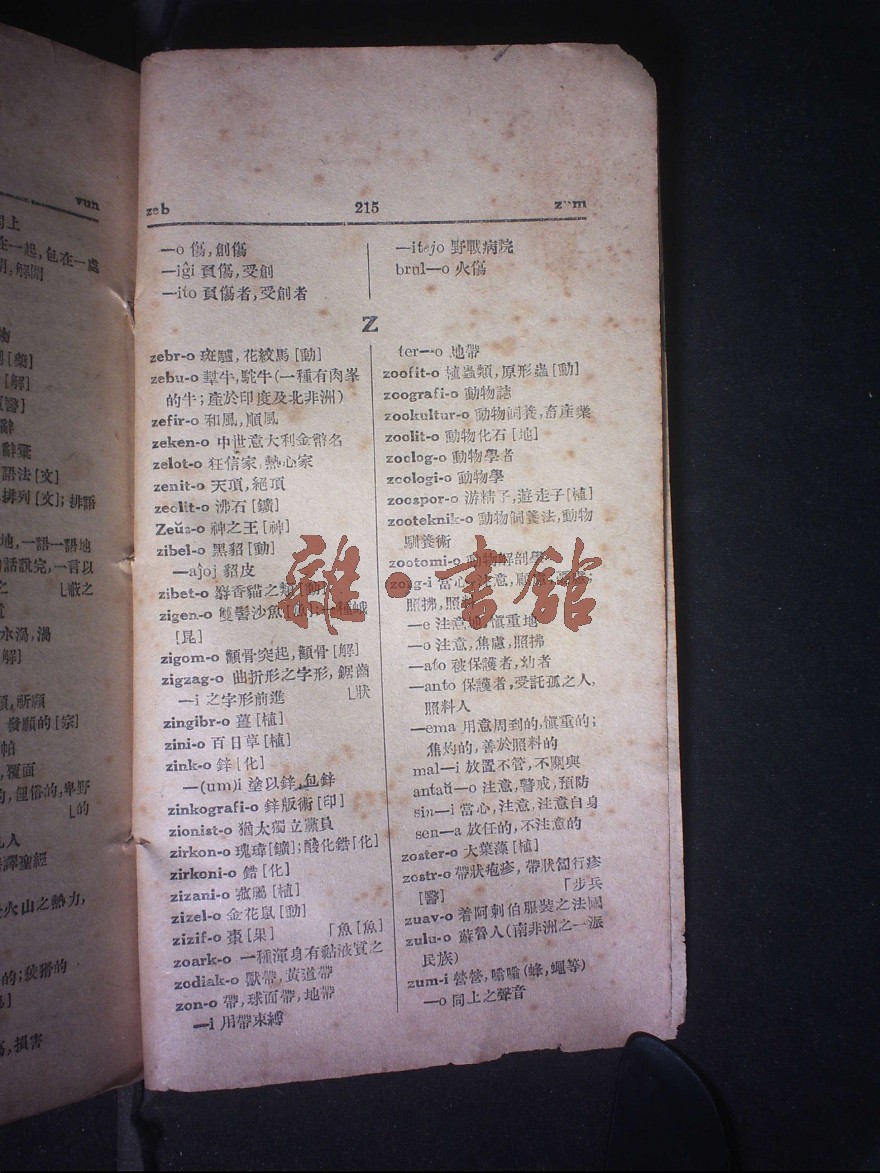 vun
同上
在一起,包在一處
解開
物
[藥]
[解]
[醫]
辭
辭彙
語法[文]
排列[文];排語
地,一語一語地
話說完,一言以
之 ㇄蔽之
水渦,渦
解]
願,祈願
發願的[宗]
帕
覆面
的,俚俗的,卑野
㇄的
凡人
譯聖經
火山之熱力,
的;狡猾的
傷,損害
zeb 215 zum
—o 傷,創傷
—iĝi 負傷,受創
—ito 負傷者,受創者
—itejo 野戰病院
brul—o 火傷
Z
zebr-o 斑驢,花紋馬[動]
zebu-o 犎牛,駝牛(一種有肉峯
的牛;產於印度及北非洲)
zefir-o 和風,順風
zeken-o 中世意大利金幣名
zelot-o 狂信家,熱心家
zenit-o 天頂,絕頂
zeolit-o 沸石[鑛]
Zeŭs-o 神之王[神]
zibel-o 黑貂[動]
—aĵoj 貂皮
zibet-o 麝香貓之類[動]
zigen-o 雙髻沙魚[魚];一種蛾
[昆]
zigom-o 顴骨突起,顴骨[解]
zigzag-o 曲折形之字形,鋸齒
—i 之字形前進 ㇄狀
zingibr-o 薑[植]
zini-o 百日草[植]
zink-o 鋅[化]
—(um)i 塗以鋅,包鋅
zinkografi-o 鋅版術[印]
zionist-o 猶太獨立黨員
zirkon-o 瑰瑋[鑛];酸化鋯[化]
zirkoni-o 鋯[化]
zizani-o 菰屬[植]
zizel-o 金花鼠[動]
zizif-o 棗[果] 「魚[魚]
zoark-o 一種渾身有黏液質之
zodiak-o 獸帶,黃道帶
zon-o 帶,球面帶,地帶
—i 用帶束縛
ter—o 地帶
zoofit-o 植蟲類,原形蟲[動]
zoografi-o 動物誌
zookultur-o 動物飼養,畜產業
zoolit-o 動物化石[地]
zoolog-o 動物學者
zoologi-o 動物學
zoospor-o 游精子,遊走子[植]
zooteknik-o 動物飼養法,動物
馴養術
zootomi-o 動物解剖學
zorg-i 當心,注意,顧慮
照拂,照料
—e 注意地,愼重地
—o 注意,焦慮,照拂
—ato 被保護者,幼者
—anto 保護者,受託孤之人,
照料人
—ema 用意周到的,愼重的;
焦灼的,善於照料的
mal—i 放置不管,不關與
antaŭ—o 注意,警戒,預防
sin—i 當心,注意,注意自身
sen—a 放任的,不注意的
zoster-o 大葉藻[植]
zostr-o 帶狀疱疹,帶狀匐行疹
[醫] 「步兵
zuav-o 着阿剌伯服裝之法國
zulu-o 蘇魯人(南非洲之一派
民族)
zum-i 營營,嗡嗡(蜂,蠅等)
—o 同上之聲音
雜·書館